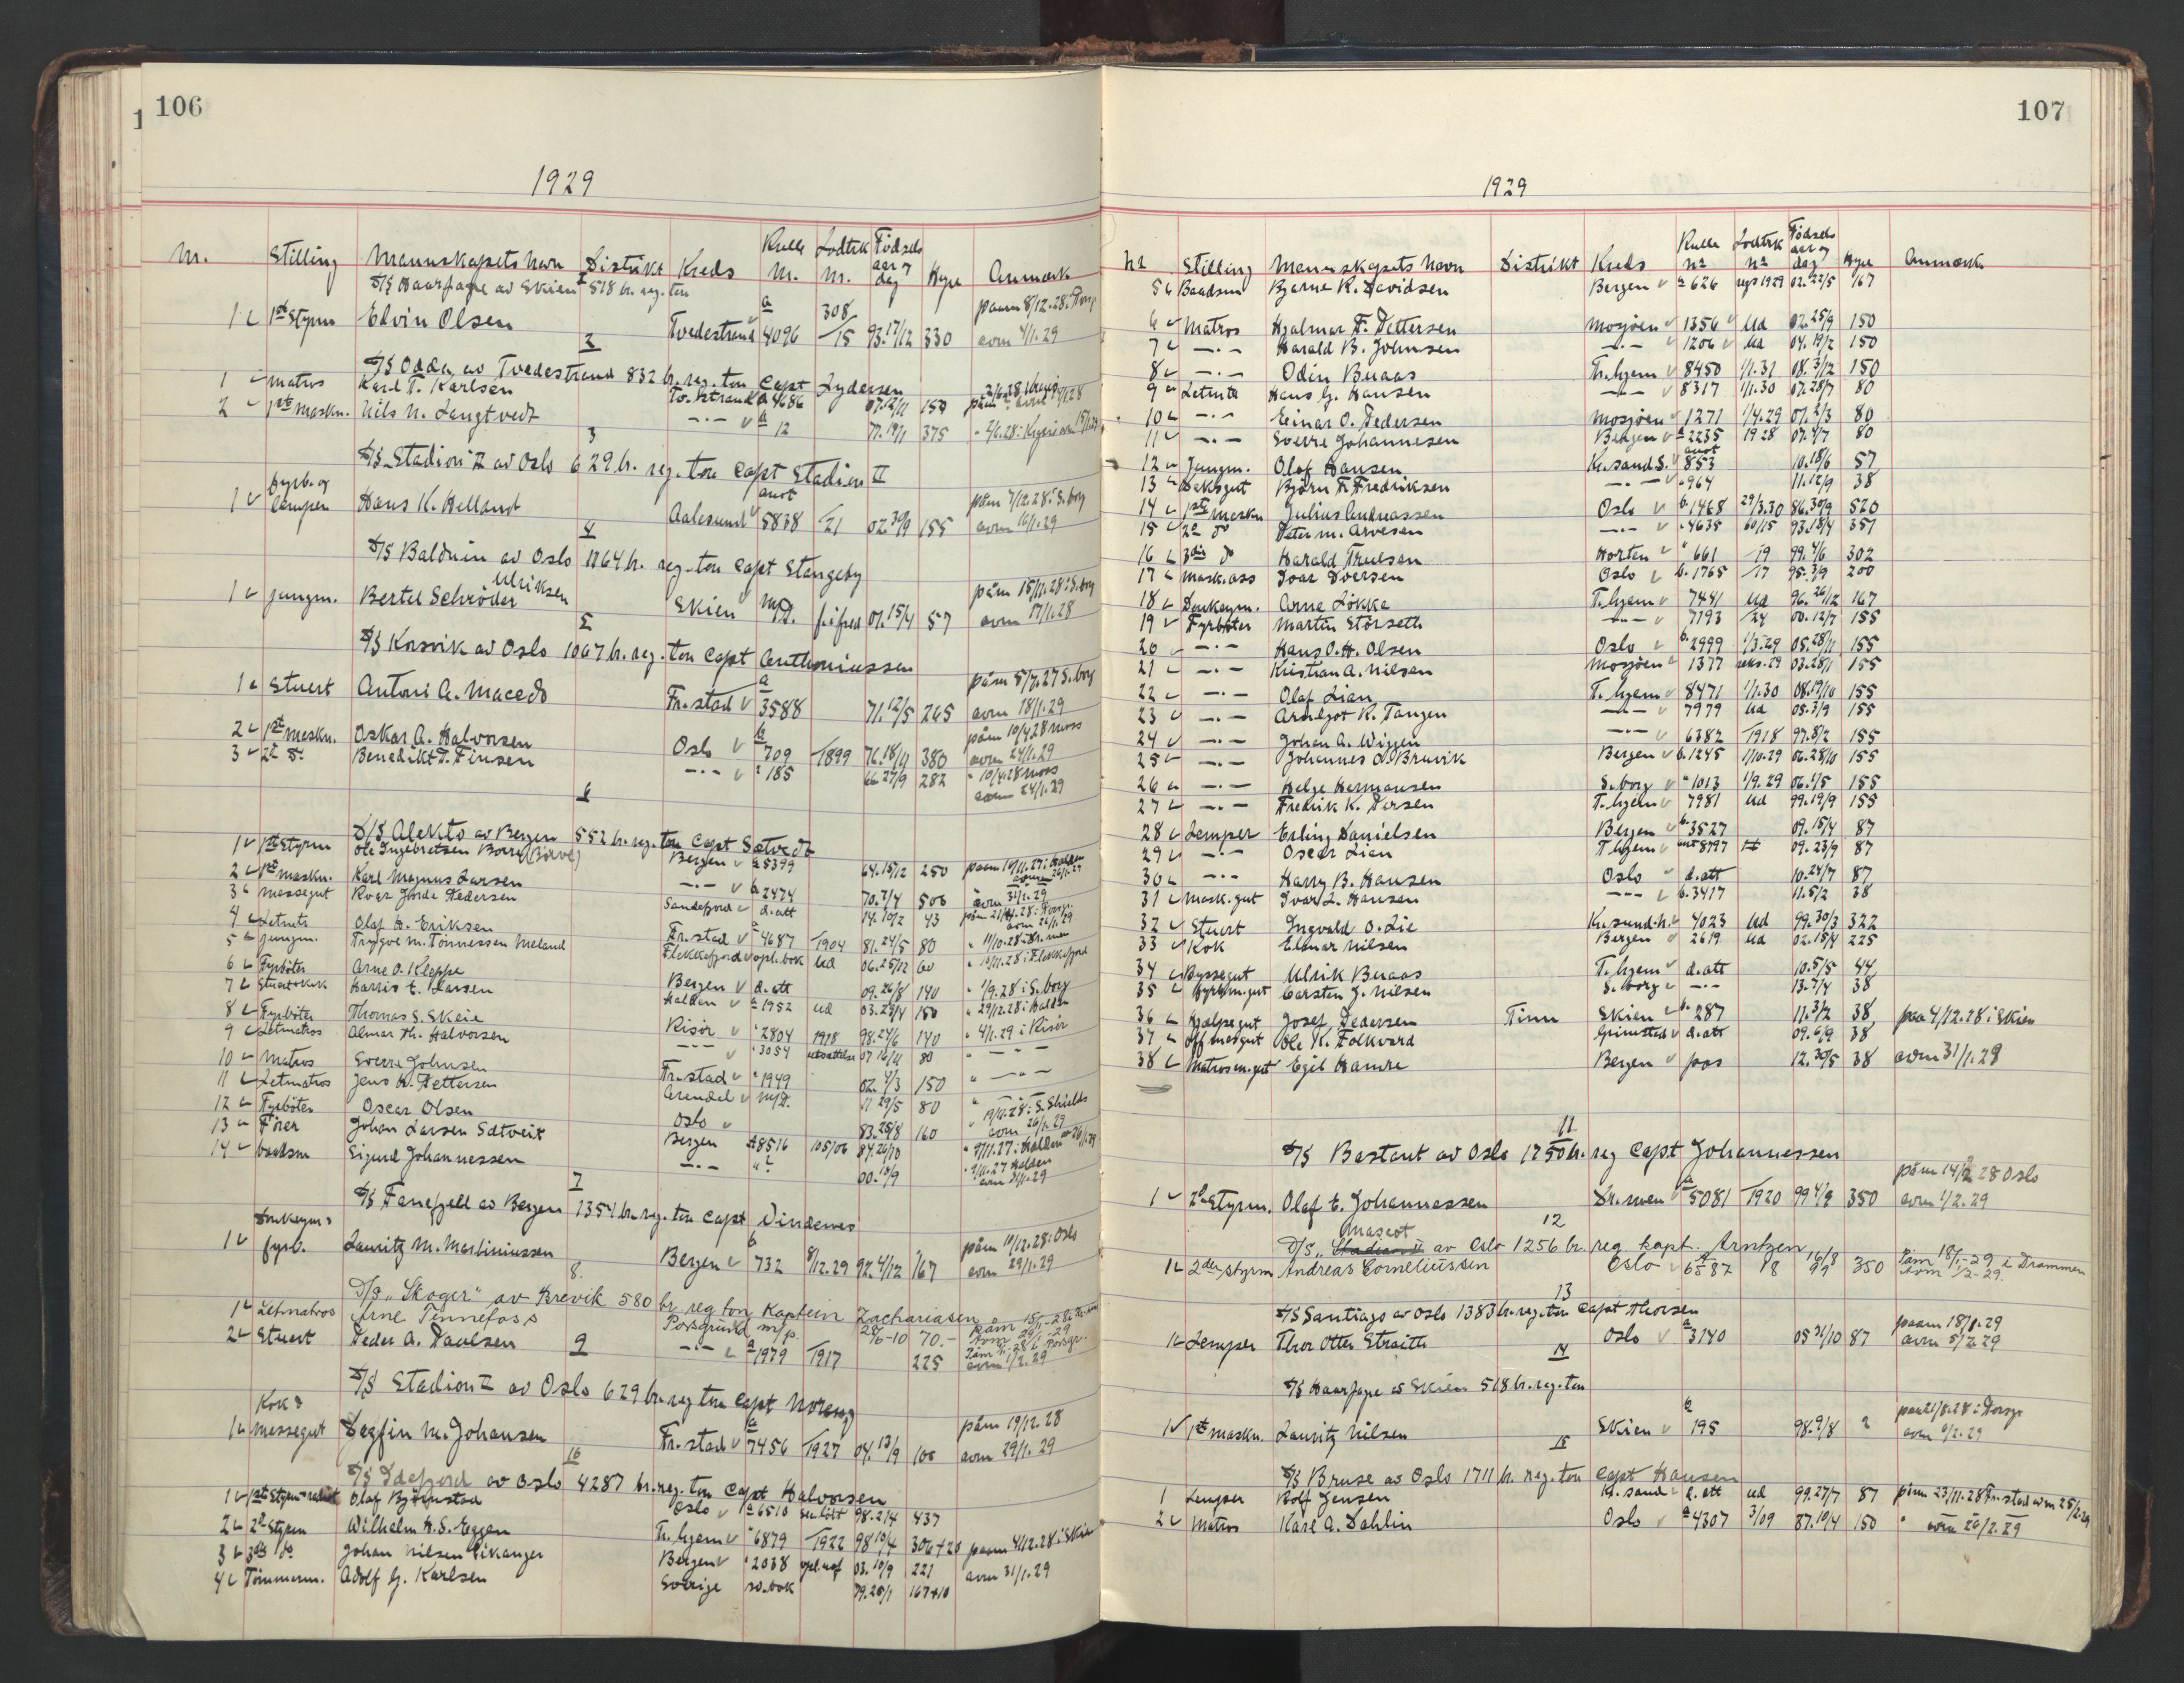 106
1929
Nr. Stilling Mannskapets navn Distrikt Kreds Rulle nr. Lodtrk nr. Födsels aar og dag Hyre Anmærk
1
S/S Haarfagre av Skien 518 br. reg. ton
1 1ste Styrm Edvin Olsen Tvedestrand a 4096 308/15 93.17/12 330 paam 8/12.28 i Porsg avm 4/1.29
2
S/S Odda av Tvedestrand 832 br. reg. ton Capt Lydersen
1 matros Karl T. Karlsen Tv.strand a 4686 07.12/11 150
2 1ste Maskn. Nils N. Langtvedt —·— a 12 77.19/1 375
3
S/S Stadion II av Oslo 629 br. reg. ton Capt Stadion II
1 fyrb. og lemper Hans K. Helland Aalesund anot 5838 /21 02.30/9 155 påm 7/12.28 i S.borg avm 16/1.29
4
S/S Balduin av Oslo 1064 br. reg. ton Capt Stangeby
1 jungm. Bertel Schröder Ulriksen Skien m/p. frifred 07.15/4 57 påm 15/11.28 i S.borg avm 17/1.28
5
S/S Korsvik av Oslo 1067 br. reg. ton Capt Anthoniussen
1 Stuert Antoni A. Macedo Fr.stad a 3588 71.12/5 265 påm 5/7.27 S.borg avm 18/1.29
2 1st maskn. Oskar A. Halvorsen Oslo b 709 /1899 76.18/11 380 påm 10/4.28 Moss avm 24/1.29
3 2t do Benedikt T. Finsen —·— " 185 66.27/9 282 " 10/4.28 Moss avm 24/1.29
6
D/S Alekto av Bergen 552 br. reg. ton Capt Sætvedt
1 1st Styrm Ole Ingebretsen Borve (Börve) Bergen a 5399 64.15/12 250 paam 10/11.27 i Halden
2 1st maskn. Karl Magnus Larsen —·— b 2474 70.7/4 500 avm 31/1.29
3 messegut Roar Jorde Pedersen Sandefjord d.att 14.10/2 43
4 Letmts Olaf H. Eriksen Fr.stad " 4687 1904 81.24/5 80 " 11/10.28 i Dr.men
5 jungm. Trygve M. Tönnessen Meland Flekkefjord opl.bok Ud 06.25/12 60 " 16/11.28 i Flekkefjord
6 Fyrböter Arne O. Kleppe Bergen d.att 09.26/8 140 " 1/9.28 i S.borg
7 Stuert&kok Harris E. Larsen Halden a 1952 ud 03.29/4 180 " 29/12.28 i Halden
8 Fyrböter Thomas S. Skeie Risör " 2804 1918 98.24/6 140 " 4/1.29 i Risör
9 Letmatros Almar Th. Halvorsen —·— " 3054 07 16/11 80 " — " —
10 Matros Sverre Johnsen Fr.stad " 1949 02.4/3 150 " — " —
11 Letmatros Jens K. Pettersen Arendal m/p. 11 29/5 80 " — " —
12 Fyrböter Oscar Olsen Oslo 83.28/8 160 " 19/11.28 i S. Shields avm 26/1.29
13 Förer Johan Larsen Sætveit Bergen A 8516 105/06 84.26/10 " 9/11.27 i Halden
14 baadsm Sigurd Johannessen —·— " ? 00.18/9 " 9/11.27 Halden
7
S/S Fanefjeld av Bergen 1354 br. reg. ton Capt Vindenes
1 Donkeym & fyrb. Lauritz M. Martiniussen Bergen b 732 8/12.29 92.4/12 167 påm 11/12.28 i Oslo avm 29/1.29
8.
D/S „Skoger" av Brevik 580 br reg ton Kaptein Zachariasen
1 Letmatros Arne Tennefoss Porsgrund m/p. 28/6-10 70.-
2 Stuert Peder A. Paulsen —·— a 1979 1917 225
9
S/S Stadion II av Oslo 629 br. reg ton Capt Noreng
1 Kok & messegut Dagfin M. Johansen Fr.stad a 7456 1927 04.13/9 100 påm 19/12.28 avm 29/1.29
10
S/S Idefjord av Oslo 4287 br. reg. ton Capt Halvorsen
1 1st Styrm Olaf Björnstad Oslo a 6510 98.21/4 437
2 2d Styrm Wilhelm H. S. Eggen Tr.hjem " 6879 1922 98 10/4 306+20 paam 4/12.28 i Skien
3 3die do Johan Nilsen Eikanger Bergen " 2038 03.10/9 221 avm 31/1.29
4 Tömmerm. Adolf G. Karlsen Sverige sv.bok 79.28/1 167+10
107
1929
No Stilling Mannskapets Navn Distrikt Kreds Rulle No Lodtrk No Födsels aar og dag Hyre Anmærk
5 Baadsm Bjarne R. Davidsen Bergen a 626 1929 02.22/5 167
6 Matros Hjalmar F. Pettersen Mosjöen 1356 Ud 02.25/9 150
7 —·— Harald B. Johnsen —·— 1206 Ud 04.19/2 150
8 —·— Odin Buaas Tr.hjem 8450 1/1.31 08.3/12 150
9 Letmts Hans G. Hansen —·— 8317 1/1.30 07.28/7 80
10 —·— Einar O. Pedersen Mosjöen 1271 1/4.29 07.2/3 80
11 —·— Sverre Johannesen Bergen a 2235 1928 07.4/7 80
12 Jungm. Olaf Hansen Kr.sand S. anot 853 10.18/6 57
13 Dæksgut Björn F. Fredriksen —·— " 964 11.12/9 38
14 1ste maskn Julius Andreassen Oslo b. 1468 29/3.30 86.30/9 520
15 2d do Peter M. Arvesen —·— " 4635 60/15 93.18/4 357
16 3die do Harald Truelsen Horten " 661 /19 99.4/6 302
17 Mask.ass Ivar Iversen Oslo b. 1765 /17 95.3/9 200
18 Donkeym. Arne Lökke T.hjem 7441 Ud 96.26/12 167
19 Fyrböter Martin Störseth —·— 7193 /24 00.12/7 155
20 —·— Hans O. H. Olsen Oslo b. 2999 1/3.29 05.28/11 155
21 —·— Kristian A. Nilsen Mosjöen 1377 03.28/1 155
22 —·— Olaf Lian T.hjem 8471 1/1.30 08.19/10 155
23 —·— Arnljot K. Tangen —·— 7979 Ud 05.3/9 155
24 —·— Johan A. Wiggen —·— 6382 /1918 97.8/2 155
25 —·— Johannes O. Bruvik Bergen b. 1245 1/10.29 06.28/10 155
26 —·— Helge Hermansen S.borg " 1013 1/9.29 06.1/5 155
27 —·— Fredrik K. Larsen T.hjem 7981 Ud 99.19/9 155
28 Lemper Erling Danielsen Bergen b. 3527 09.15/4 87
29 —·— Oscar Lian T.hjem 8797 09.23/9 87
30 —·— Harry B. Hansen Oslo d.att 10.24/7 87
31 Mask.gut Ivar L. Hansen —·— b. 3417 11.5/2 38
32 Stuert Ingvald O. Lie Kr.sund.N. 4023 Ud 99.30/3 322
33 Kok Elmar Nilsen Bergen 2619 Ud 02.15/4 225
34 Byssegut Ulrik Buaas T.hjem d.att 10.5/5 44
35 Fyrbm.gut Carsten J. Nilsen S.borg —·— 13.7/4 38
36 Hjelpegut Josef Pedersen Tinn Skien b. 287 11.3/2 38 paa 4/12.28 i Skien
37 Off.mesgut Ole K. Folkvord Grimstad d.att 09.6/9 38
38 Matrosm.gut Egil Hamre Bergen pas 12.30/5 38 avm 31/1.29
11
S/S Bastant av Oslo 1750 br. reg Capt Johannessen
1 2d Styrm. Olaf E. Johannessen Dr.men a 5081 /1920 99 4/9 350 avm 1/2.29
12
Mascot
D/S „Stadion II av Oslo 1256 br. reg. kapt. Arntzen
1 2den Styrm Andreas Corneliussen Oslo A 6587 18 16/8 99 350 Påm 18/1-29 i Drammen avm 1/2-29.
13
S/S Santiago av Oslo 1383 br. reg. ton Capt Thorsen
1 Lemper Thor Otter Straith Oslo a 3140 05 31/10 87 paam 18/1.29 avm 5/2.29
14
S/S Haarfagre av Skien 518 br. reg. ton
1 1st maskn. Lauritz Nilsen Skien a 195 98.9/8 ? paa 21/8.28 i Porsgr avm 6/2.29
15
S/S Bruse av Oslo 1711 br. reg. ton Capt Hansen
1 Lemper Rolf Jensen Kr.sand d.att ud 99.27/7 87 påm 23/11.28 Fr.stad avm 25/2.29
2 Matros Karl A. Dahlin Oslo a 4307 3/09 87.10/4 150 " avm 26/2.29